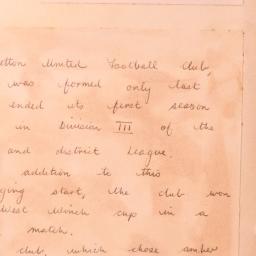 utton United Football Club,
was formed only last
ended its first season
in Division III of the
and district League.
addition to this
ging start, the club won
West Winch cup in a
match.
club, which chose amber